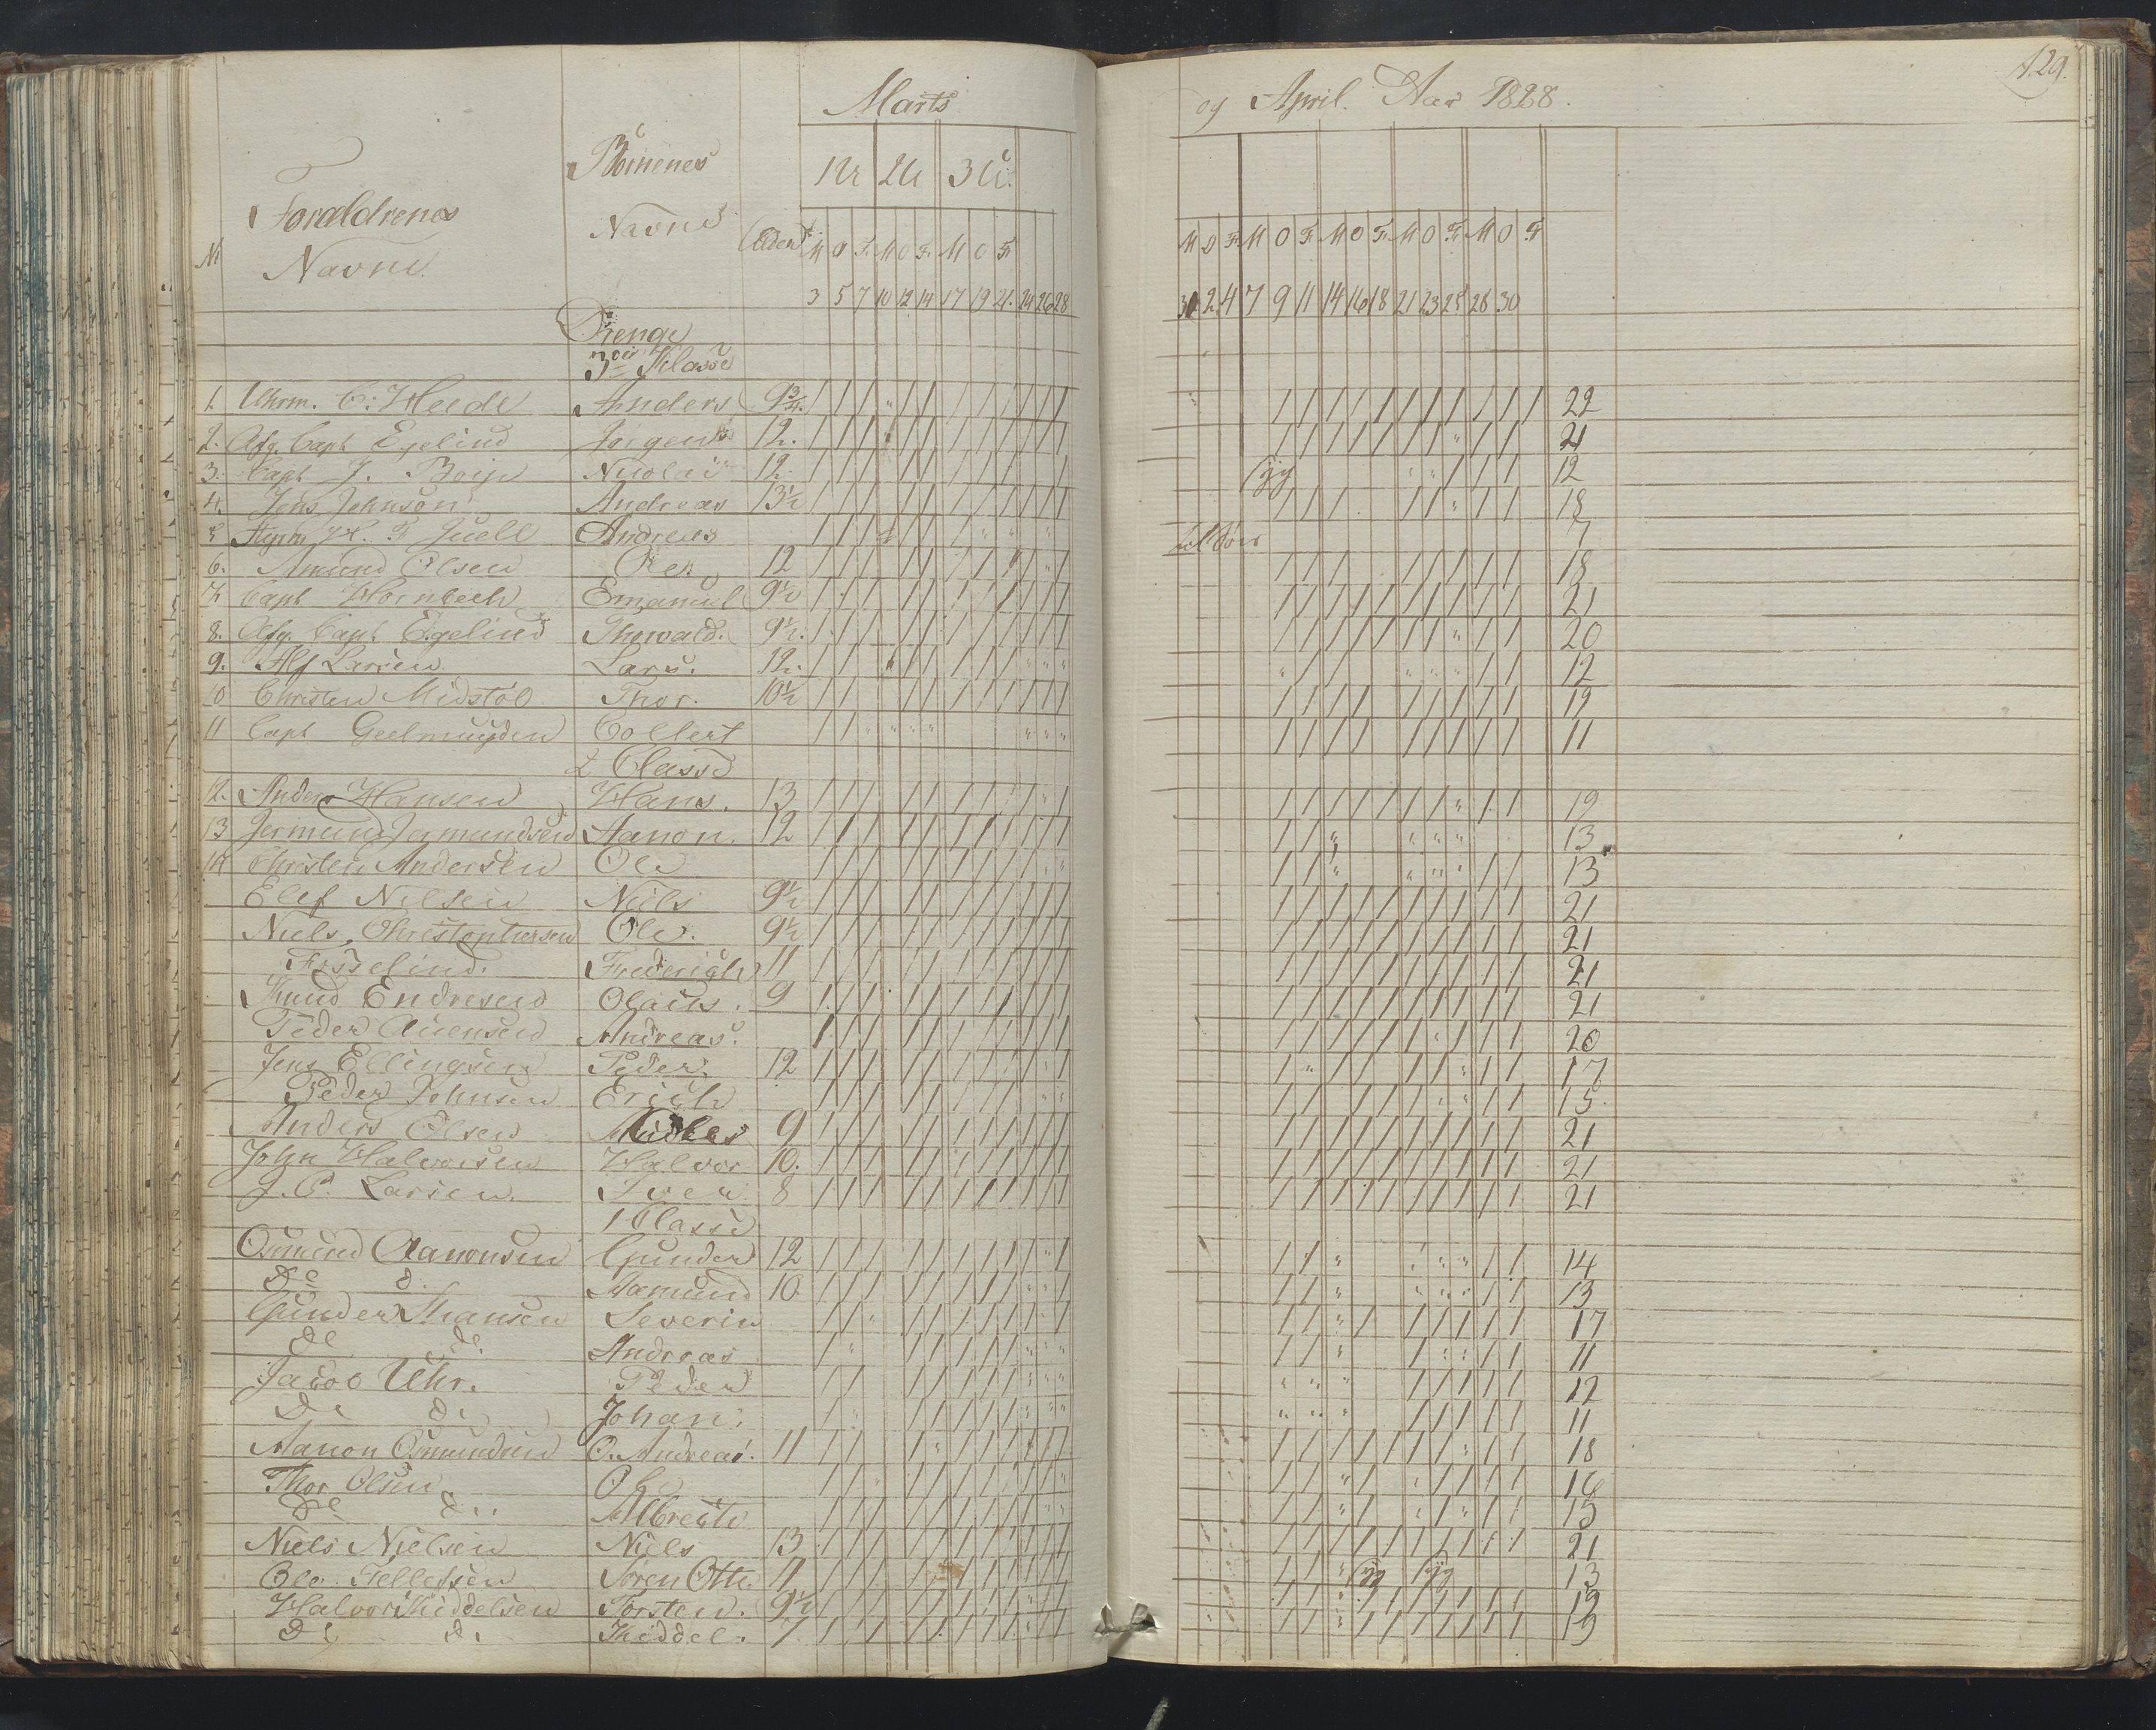 Marts
og April. Aar 1828.
129.
Nr Forældrenes Navne Børnenes Navne Alder
1 U 2 U 3 U.
M O F M O F M O F
M O F M O F M O F M O F M O F
3 5 7 10 12 14 17 19 21 24 26 28
31 2 4 7 9 11 14 16 18 21 23 25 28 30
Drenge
3die Klasse
1. Uhrm. C: Heede Anders 9 3/4 22
2. Afg. Capt Egelind Jørgen 12. 21
3. Capt J. Boije Nicolai 12 syg 12
4. Jens Johnson Andreas 13 1/2 18
5 H. F Juell Andreas til Søes 7
6. Amund Olsen Ole 12 18
7. Capt Hornbech Emanuel 9 1/2 21
8. Afg. Capt. Egelind Thorvald. 9 1/2. 20
9. Alf Larsen Lars. 12. 12
10 Christen Midstöl Thor. 10 1/2 19
11 Capt Geelmuyden Collert 11
2 Classe
12. Anders Hansen Hans. 13 19
13 Jermund Jermundsen Aanon. 12 13
14 Christen Andersen Ole 13
Elef Nilsen Niels 9 1/2 21
Niels Christophersen Ole. 9 1/2 21
Fosselind. Frederich 11 21
Knud Endresen Olaus. 9 21
Peder Auensen Andreas. 20
Jens Ellingsen Peder. 12 17
Peder Johnsen Erich 15
Anders Olsen 9 21
John Halvorsen Halvor 10. 21
J. P. Larsen. Iver 8 21
1 Classe
Osmund Aanonsen Gunder 12 14
De d. Aamund 10. 13
Gunder Severin 17
de de Andreas 11
Jacob Uhr. Peder 12
De de Johan. 11
Aanon Osmundsen O. Andreas. 11 18
Thor Olsen Ole 16
De d.. Albrecth 15
Niels Nielsen Niels 13 21
Ole Tellefsen Søren Otto 11 syg syg 13
Halvor Kiddelsen Torsten. 9 1/2 19
De de Kiddel. 7 19